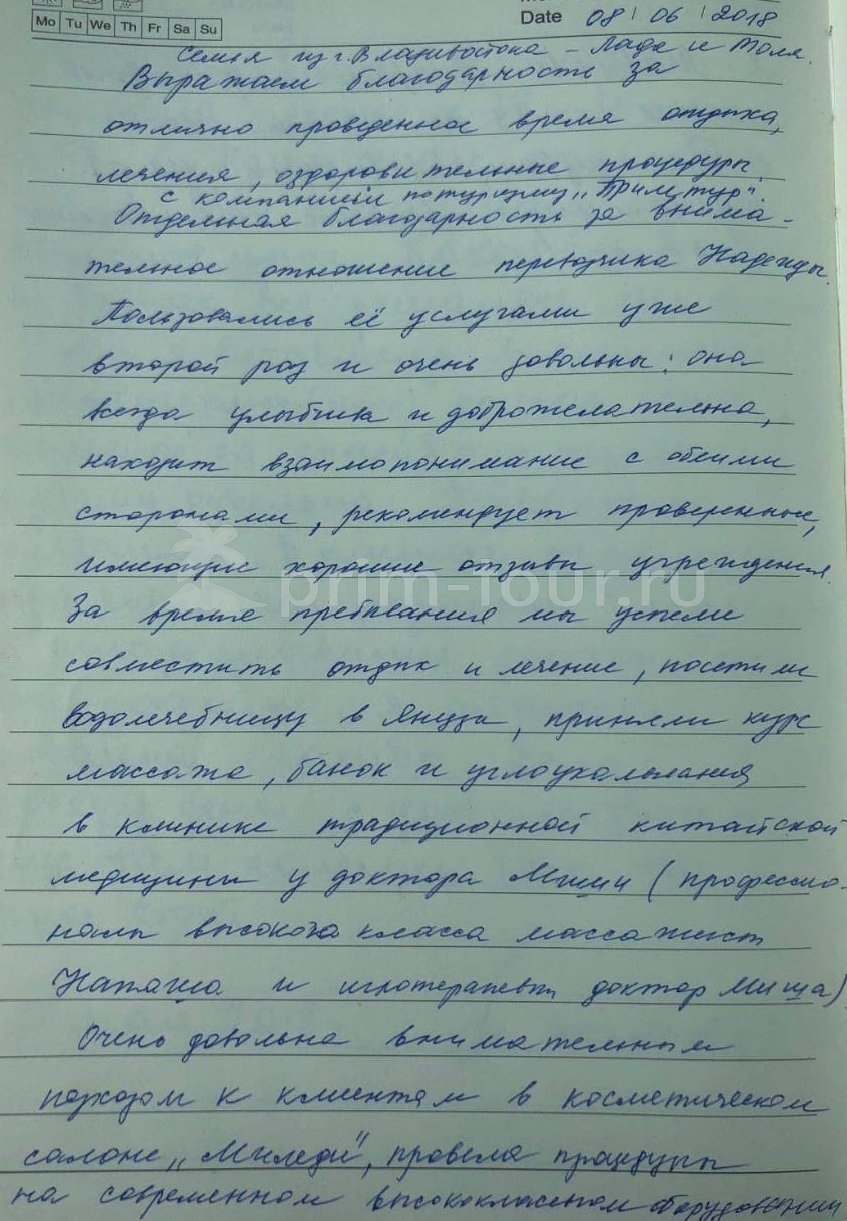 Mo Tu We Th Fr Sa Su
Date 08 / 06 / 2018
Семья из г. Владивостока – Лада и Толя.
Выражаем благодарность за
отлично проведенное время отдыха,
лечения, оздоровительные процедуры
с компанией по туризму „Примтур".
Отдельная благодарность за внима-
тельное отношение переводчика Надежды.
Пользовались её услугами уже
второй раз и очень довольны: она
всегда улыбчива и доброжелательна,
находит взаимопонимание с обеими
сторонами, рекомендует проверенные,
имеющие хорошие отзывы учреждения.
prim-tour.ru
За время пребывания мы успели
совместить отдых и лечение, посетили
водолечебницу в Янцзы, приняли курс
массажа, банок и иглоукалывания
в клинике традиционной китайской
медицины у доктора Миши (профессио-
налы высокого класса массажист
Наташа и иглотерапевт доктор Миша)
Очень довольна внимательным
подходом к клиентам в косметическом
салоне „Миледи", провела процедуры
на современном высококлассном оборудовании